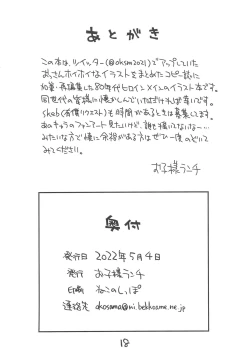 あとがき
この本は、ツイッター(@oksm2021)でアップしていた
おっさんホイホイなイラストをまとめたコピー誌に
加筆・再編集した80年代ヒロインメインのイラスト本です。
同世代の皆様に懐かしんでいただければ幸いです。
skeb(有償リクエスト)も時間があるときは募集してます。
あのキャラのファンアート見たいけど、誰も描いてないな…
みたいな方で懐に余裕がある方はぜひ一度のぞいて
みてください。
お子様ランチ
奥付
発行日 2022年5月4日
発行 お子様ランチ
印刷 ねこのしっぽ
連絡先 okosama@ni.bekkoame.ne.jp
18